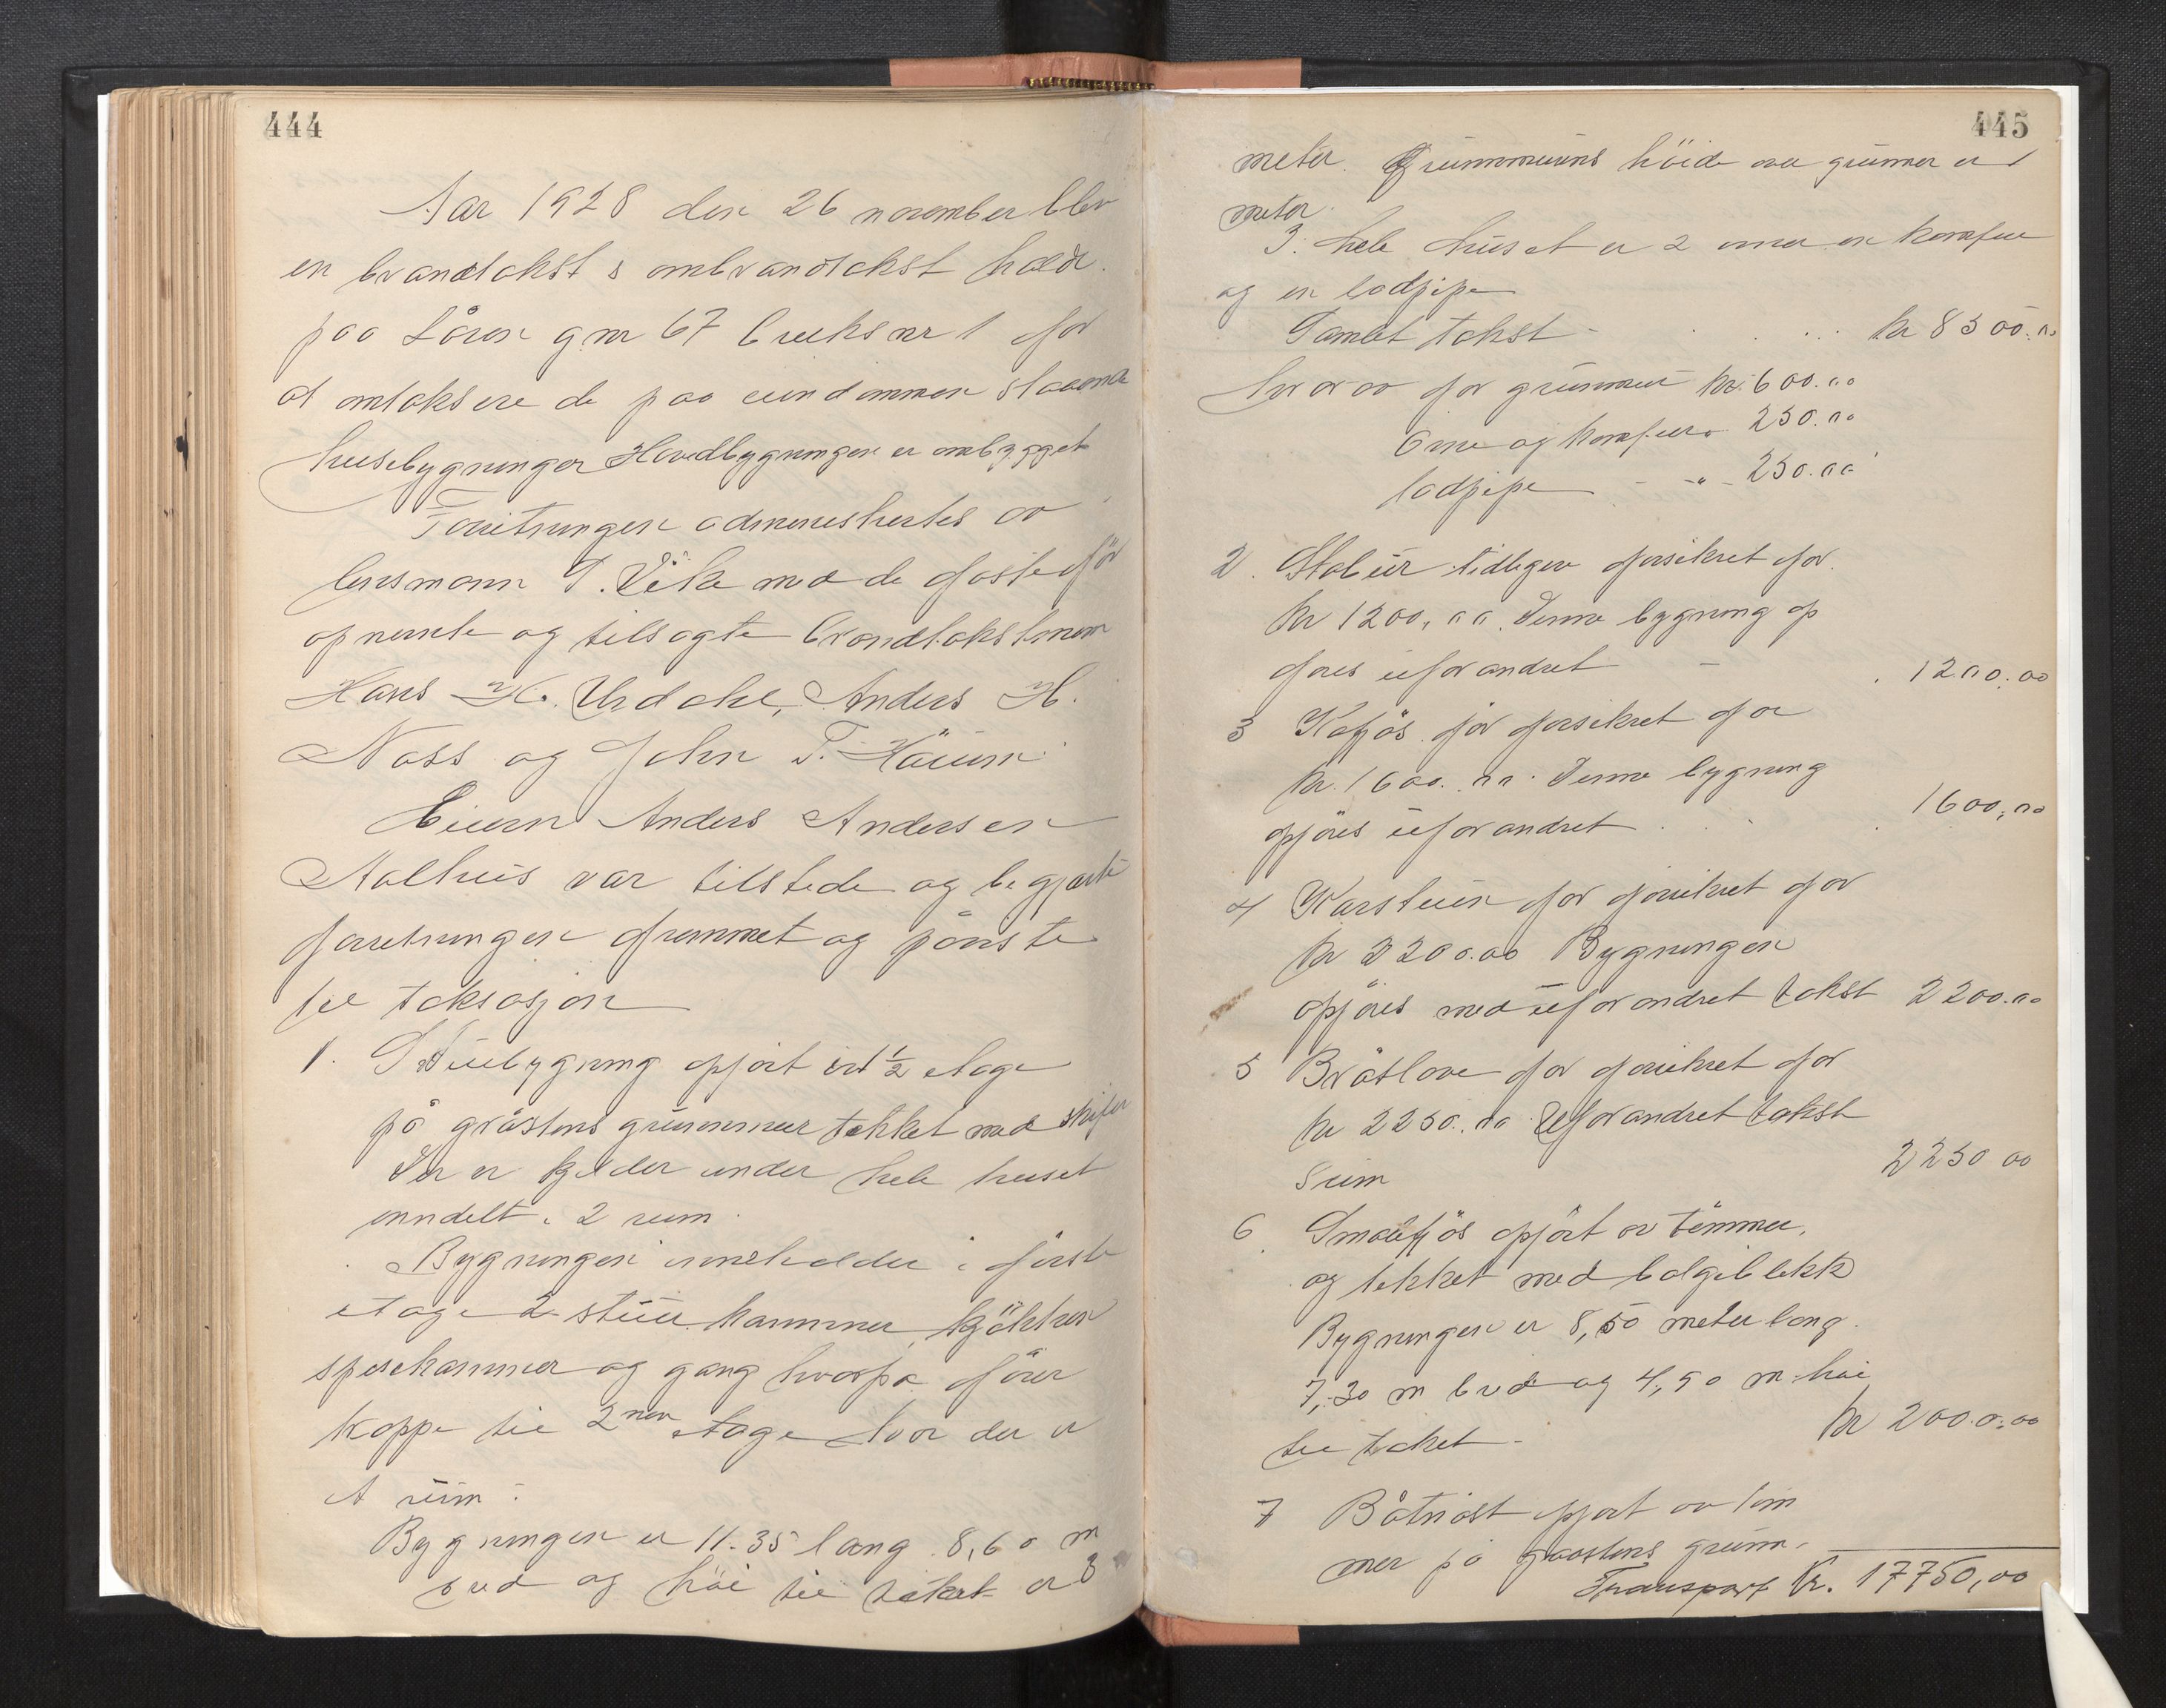 444
Aar 1928 den 26 november blev
en brandtakst & ombrandtakst holdt
paa Lören g nr 67 bruksnr 1 for
at omtaksere de paa eiendommen staaende
husebygninger Hovedbygningen er ombygget
Forretningen administrertes av
lensmann T. Vike med de faste for
opnevnte og tilsagte brandtakstmenn
Hans H. Urdahl, Anders H.
Nass og John T. Häum
Eieren Anders Andersen
Aalhus var tilstede og begjærte
forretningen fremmet og
til taksasjon
1. Stuebygning opfört i 1 1/2 etage
på gråstens grunnmur tekket med skifer
Der er kjelder under hele huset
inndelt i 2 rum.
Bygningen inneholder i förste
etage 2 stuer kammer kjökken
spisekammer og gang hvorfra förer
trappe til 2nen etage hvor der er
et rum.
Bygningen er 11.35 lang 8,60 m
bred og höi til taket er 3
445
meter. Grunnmurens höide over grunnen er 1
meter.
I hele huset er 2 ovner en komfur
og en lodpipe
Samlet takst - kr 8500.00
hvorav for grunnmur kr. 600.00
Ovne og komfur " 250.00
lodpipe - " - 250.00
2. Stabur tidligere forsikret for
kr 1200,00. Denne bygning op
föres uforandret - 1200.00
3 Kofjös för forsikret for
kr. 1600.00. Denne bygning
opföres uforandret 1600,00
4 Karstuen för forsikret for
kr 2200.00 Bygningen
opföres med uforandret takst 2200.00
5 Bråtlöve för forsikret for
kr 2250.00 Uforandret takst
Sum 2250 00
6. Smalefjös opfört av tömmer,
og tekket med bølgeblekk
Bygningen er 8,50 meter lang.
7,30 m bred og 4,50 m höi
til taket - kr 2000.00
7 Båtnöst opfört av töm
mer på graastens grunn-
Transport Kr. 17750,00